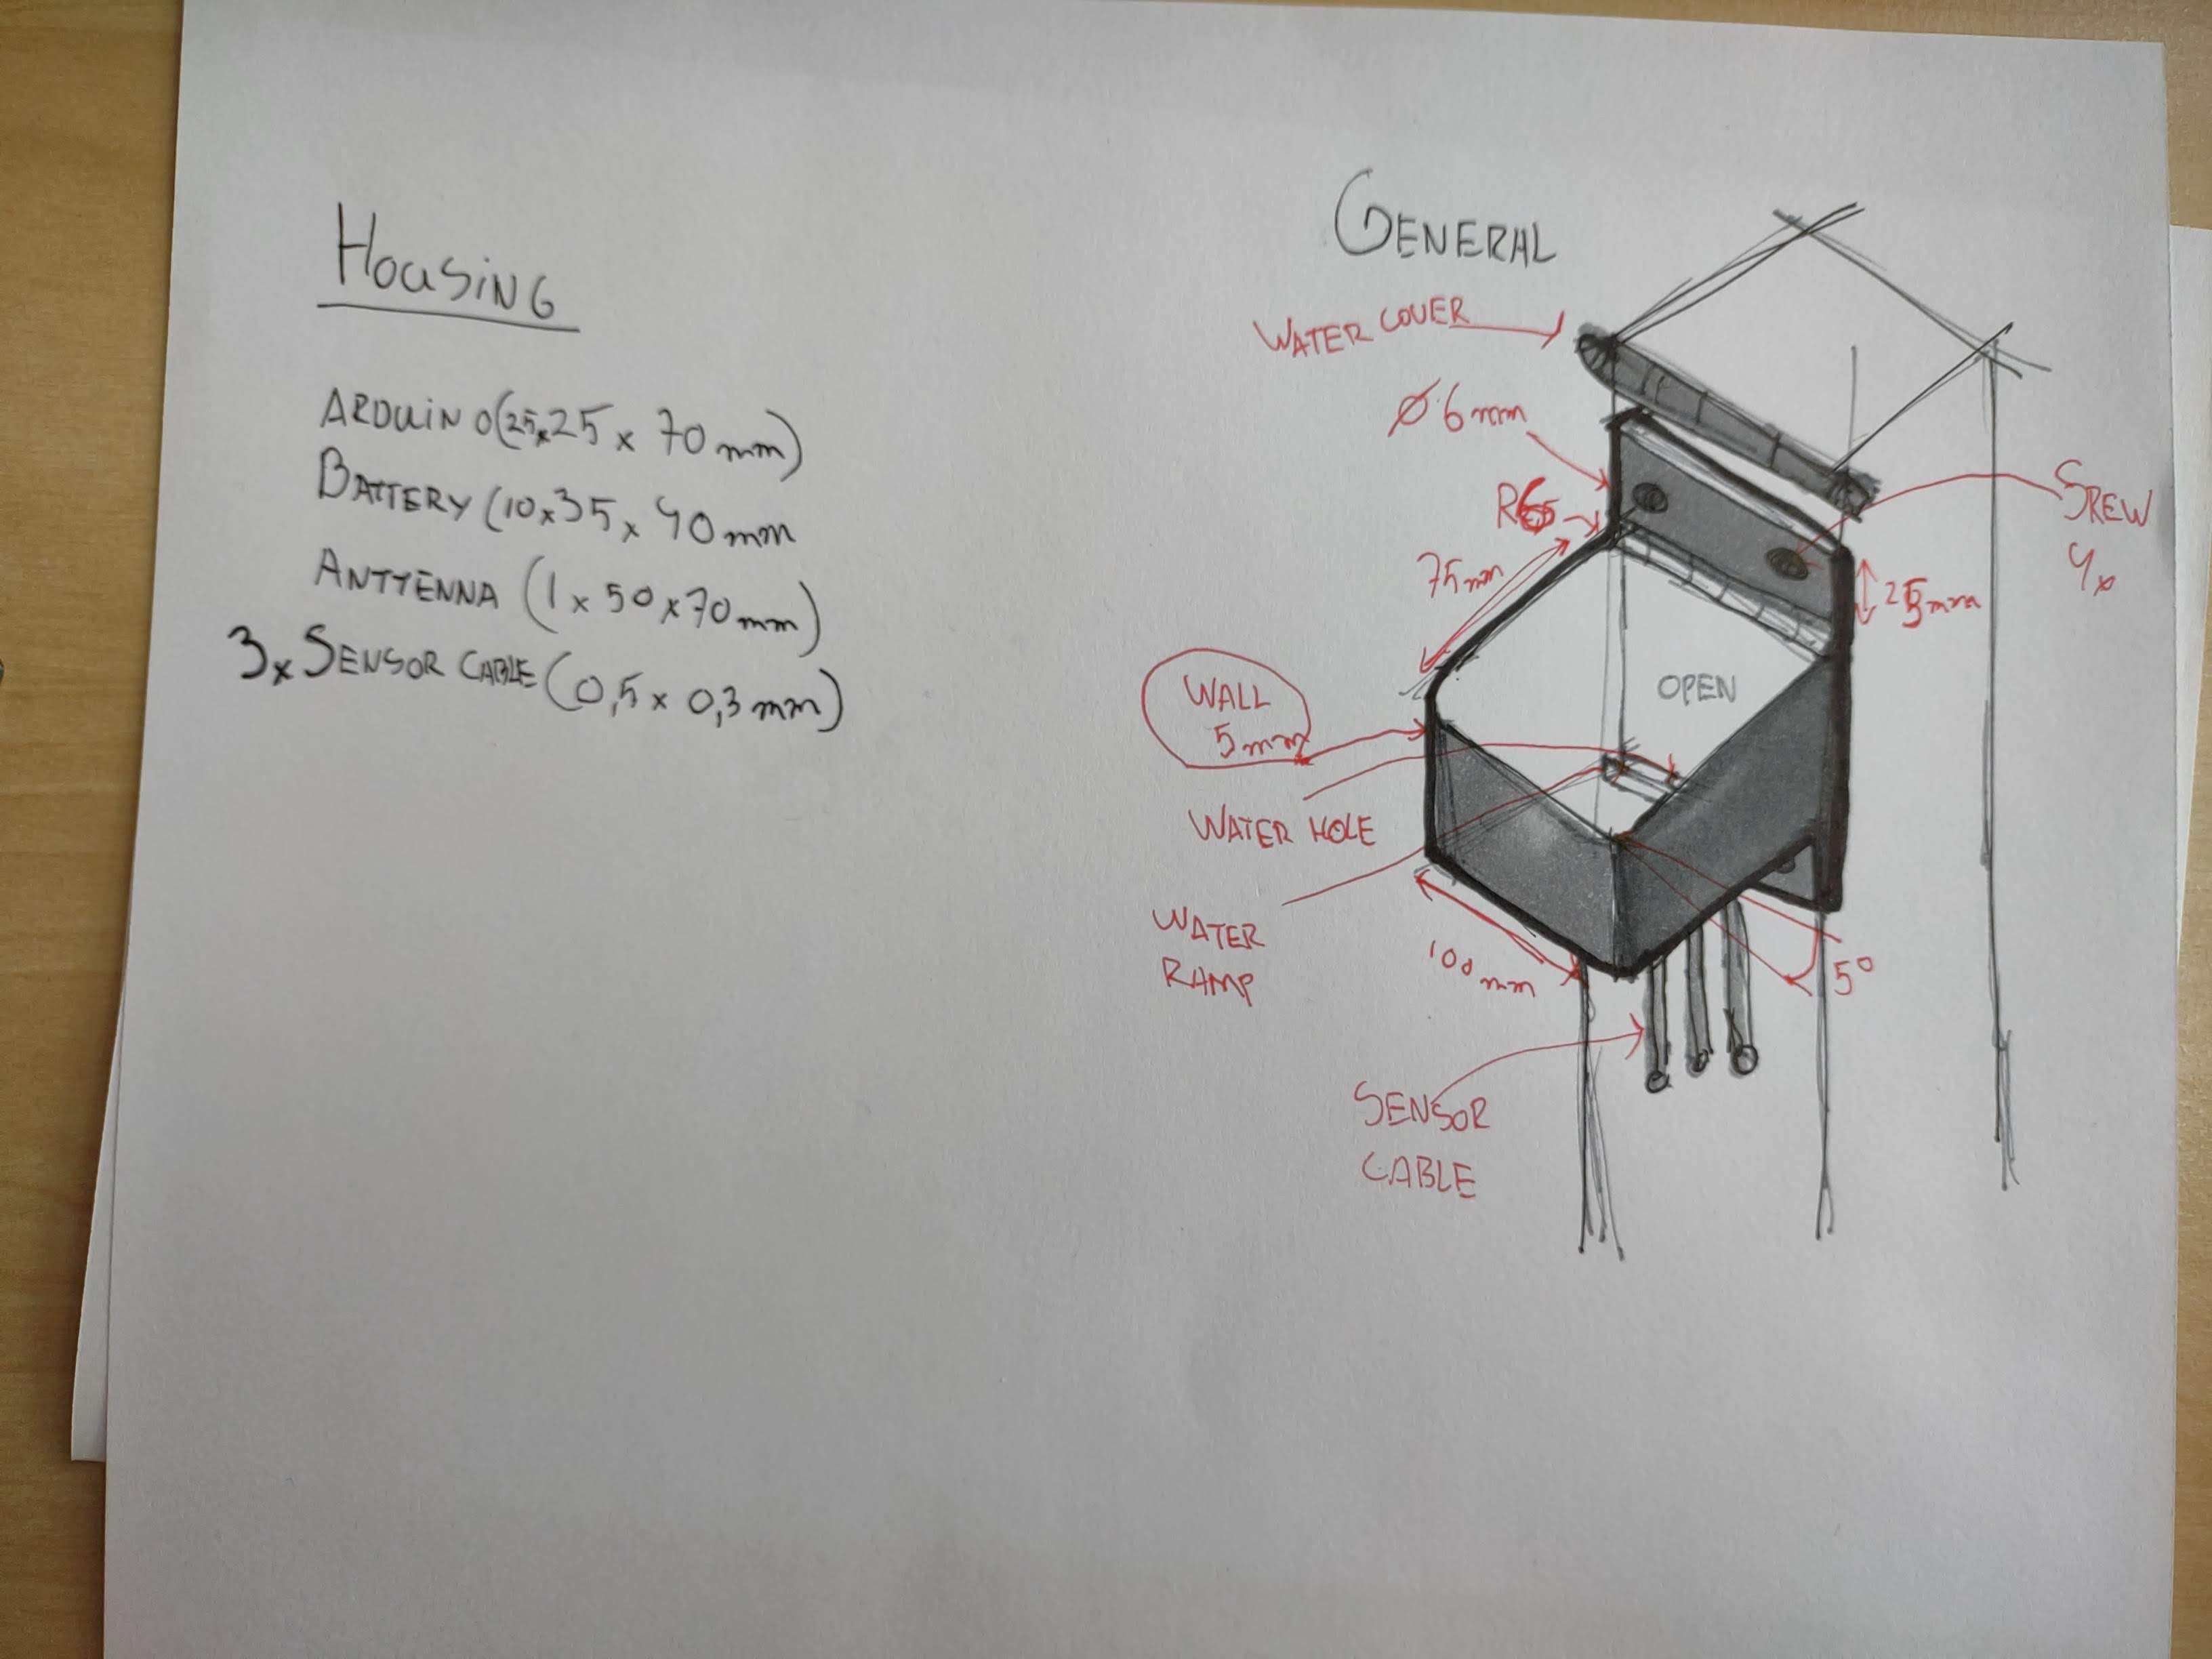 HOUSING
ARDUINO (25x25 x 70mm)
BATTERY (10x35x 40mm
ANTTENNA (1 x 50x70mm)
3x SENSOR CABLE (0,5 x 0,3mm)
GENERAL
WATER COVER
Ø 6mm
75mm
WALL
5mm
WATER HOLE
WATER
RAMP
100mm
SENSOR
CABLE
OPEN
5°
25mm
SREW
4x